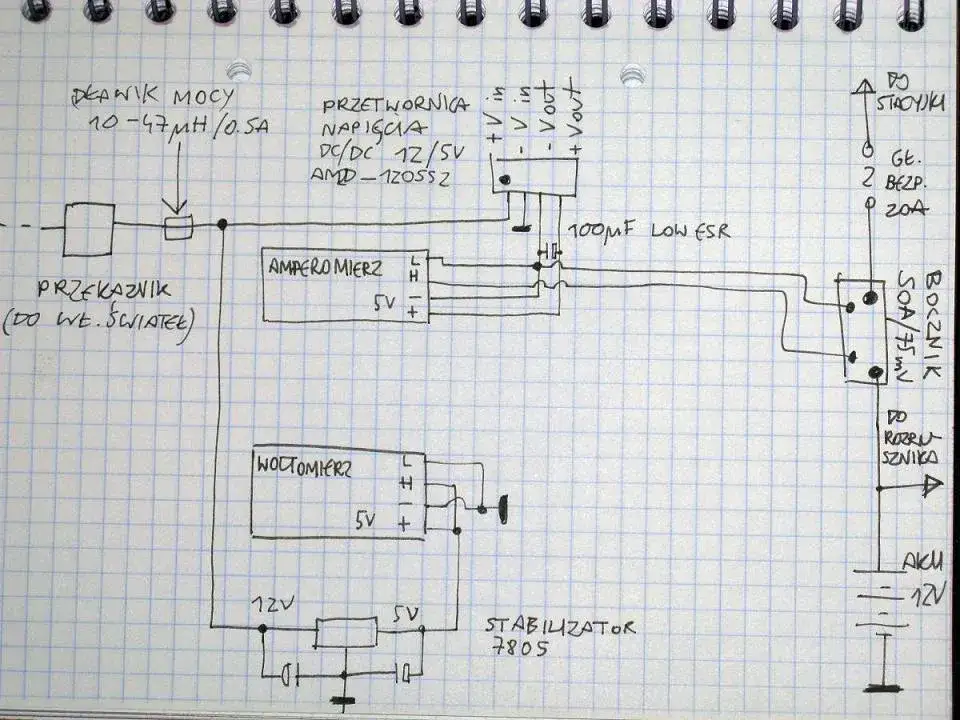 DŁAWIK MOCY
10-47µH/0.5A
PRZETWORNICA
NAPIĘCIA
DC/DC 12/5V
AMD-1205S2
+ Vin
- Vin
- Vout
+ Vout
DO
STACYJKI
GŁ.
BEZP.
20A
100µF LOW ESR
AMPEROMIERZ
L
H
-
5V +
PRZEKAŹNIK
(DO WŁ. ŚWIATEŁ)
BOCZNIK
50A/75mV
DO
ROZRU-
SZNIKA
WOLTOMIERZ
L
H
-
5V +
AKU
12V
12V
5V
STABILIZATOR
7805